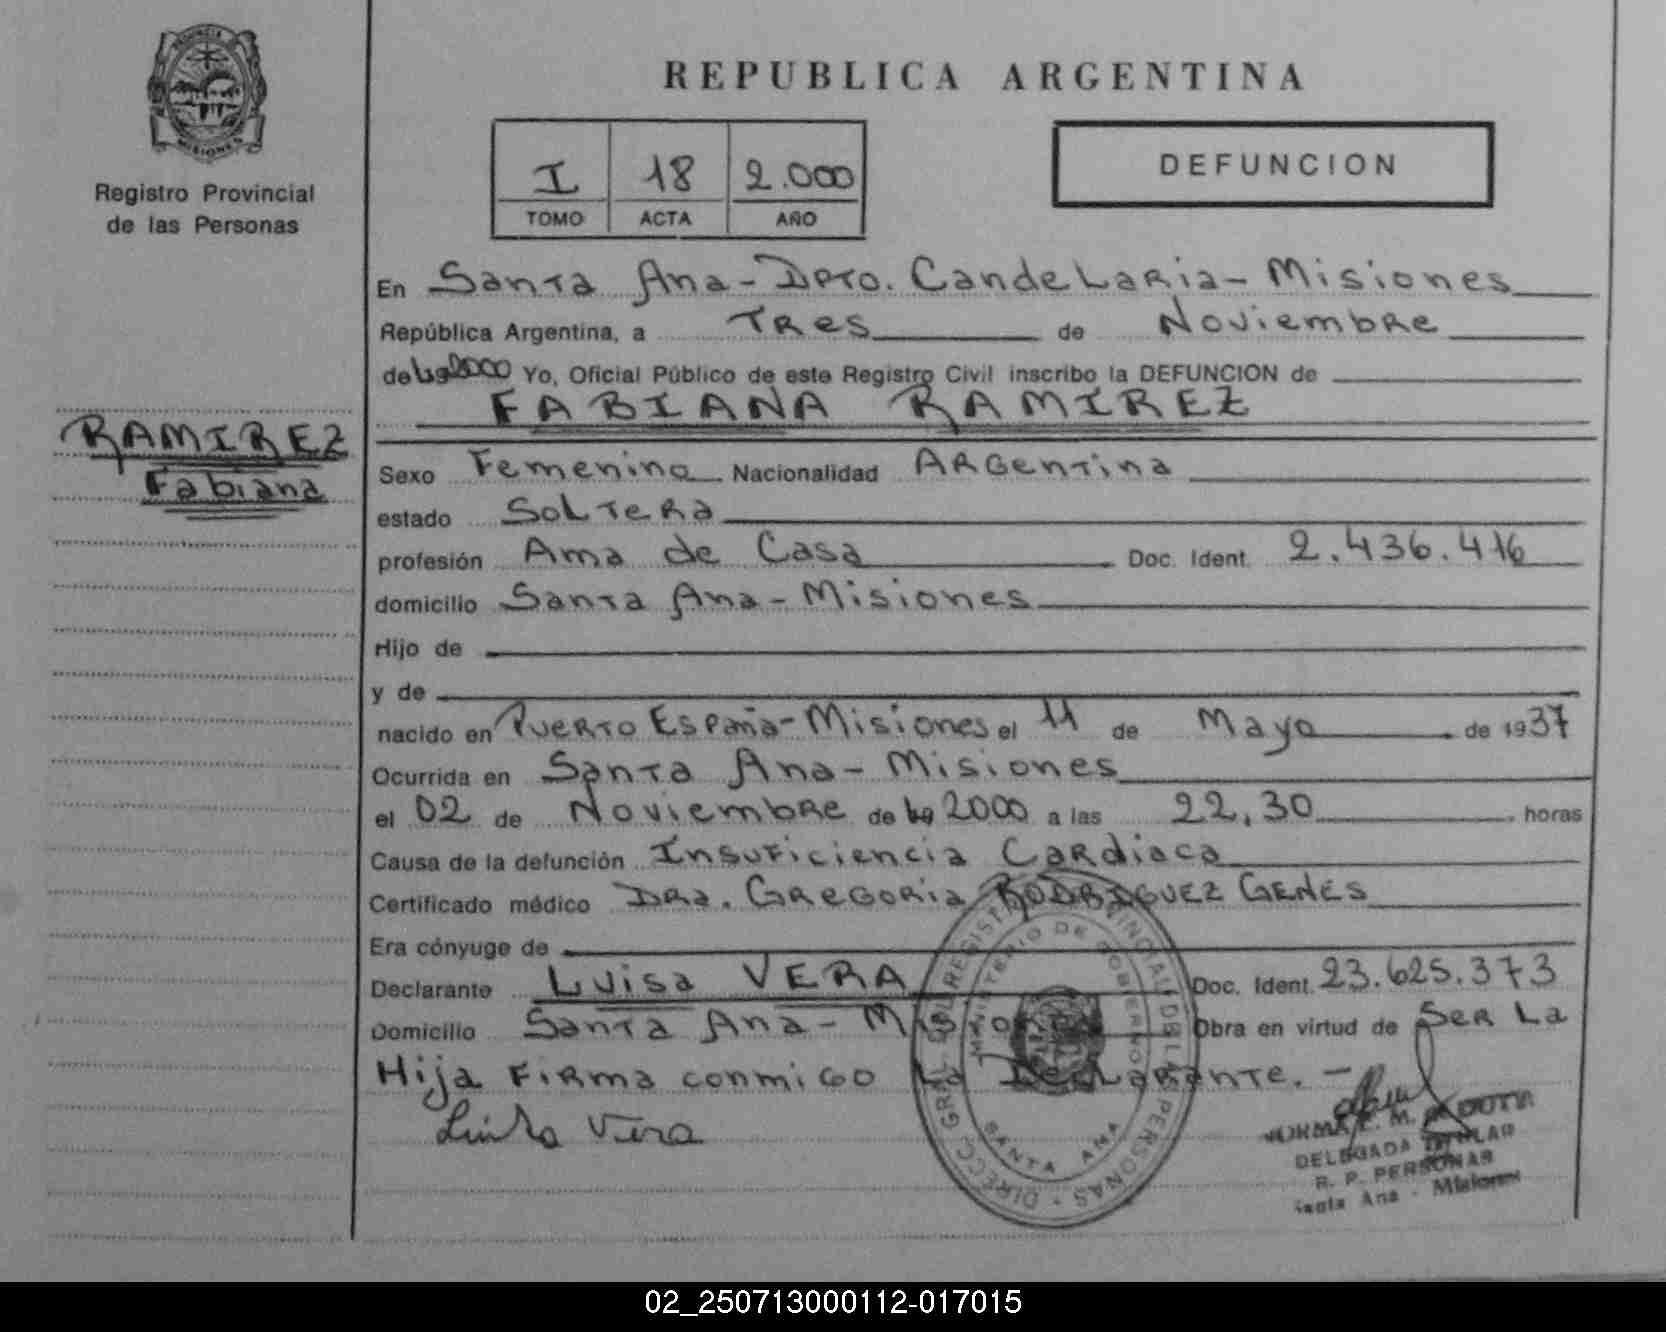 PROVINCIA
MISIONES
Registro Provincial
de las Personas
REPUBLICA ARGENTINA
I 18 2.000
TOMO ACTA AÑO
DEFUNCION
En Santa Ana - Dpto. Candelaria - Misiones
República Argentina, a Tres de Noviembre
de 2000 Yo, Oficial Público de este Registro Civil inscribo la DEFUNCION de
FABIANA RAMIREZ
RAMIREZ
Fabiana
Sexo Femenino Nacionalidad Argentina
estado Soltera
profesión Ama de Casa Doc. Ident. 2.436.416
domicilio Santa Ana - Misiones
Hijo de
y de
nacido en Puerto España - Misiones el 11 de Mayo de 1937
Ocurrida en Santa Ana - Misiones
el 02 de Noviembre de 2000 a las 22,30 horas
Causa de la defunción Insuficiencia Cardiaca
Certificado médico Dra. Gregoria RODRIGUEZ GENES
Era cónyuge de
Declarante Luisa VERA Doc. Ident. 23.625.373
Domicilio Santa Ana - Misiones Obra en virtud de Ser La
Hija Firma conmigo La Declarante. -
Luisa Vera
DIRECC. GRAL. DEL REGISTRO PROVINCIAL DE LAS PERSONAS
MINISTERIO DE GOBIERNO
SANTA ANA
NORMA M.
DELEGADA TITULAR
R. P. PERSONAS
Santa Ana - Misiones
02_250713000112-017015